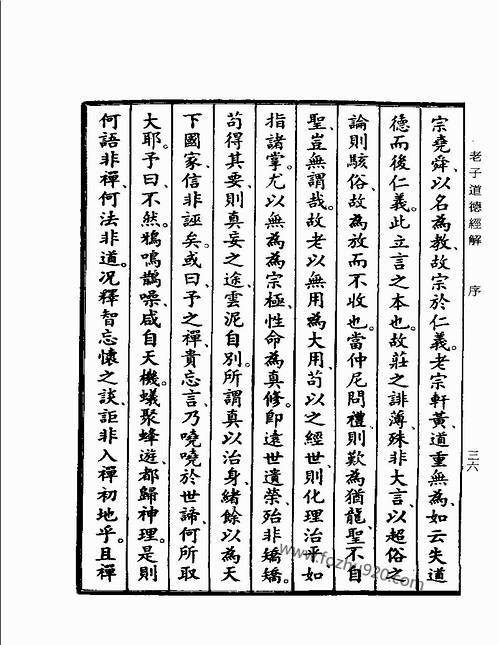 老子道德經解　序　三六
宗堯舜、以名為教、故宗於仁義。老宗軒黃、道重無為、如云失道
德而後仁義。此立言之本也。故莊之誹薄、殊非大言、以超俗之
論則駭俗、故為放而不收也。當仲尼問禮、則歎為猶龍、聖不自
聖、豈無謂哉。故老以無用為大用、苟以之經世、則化理治平、如
指諸掌。尤以無為為宗極、性命為真修。即遠世遺榮、殆非矯矯。
苟得其要、則真妄之途、雲泥自別。所謂真以治身、緒餘以為天
下國家、信非誣矣。或曰、予之禪、貴忘言、乃嘵嘵於世諦、何所取
大耶。予曰、不然。鴉鳴鵲噪、咸自天機。蟻聚蜂遊、都歸神理。是則
何語非禪、何法非道。況釋智忘懷之談、詎非入禪初地乎。且禪
www.fozhu920.com